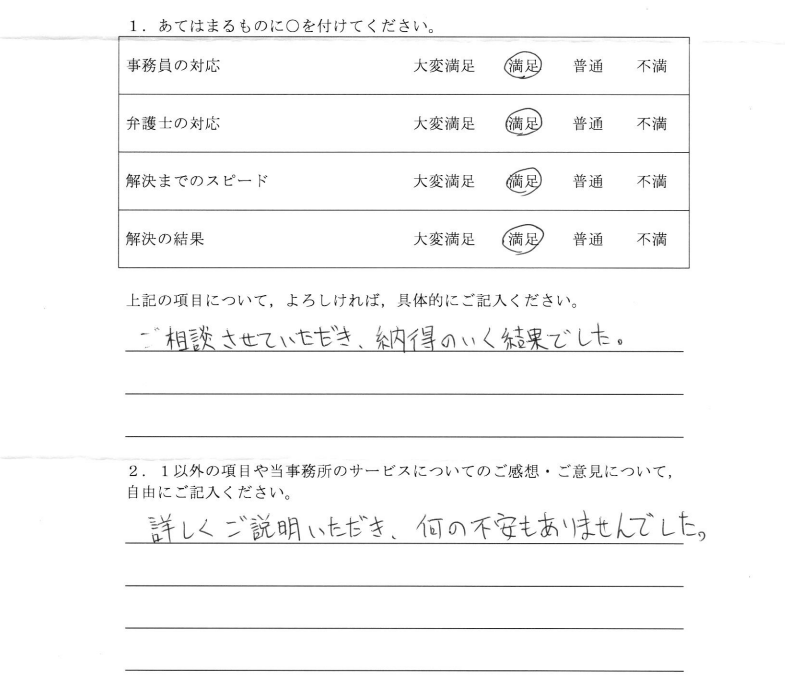 1．あてはまるものに○を付けてください。
事務員の対応 大変満足 満足 普通 不満
弁護士の対応 大変満足 満足 普通 不満
解決までのスピード 大変満足 満足 普通 不満
解決の結果 大変満足 満足 普通 不満
上記の項目について，よろしければ，具体的にご記入ください。
ご相談させていただき、納得のいく結果でした。
2．1以外の項目や当事務所のサービスについてのご感想・ご意見について，
自由にご記入ください。
詳しくご説明いただき、何の不安もありませんでした。